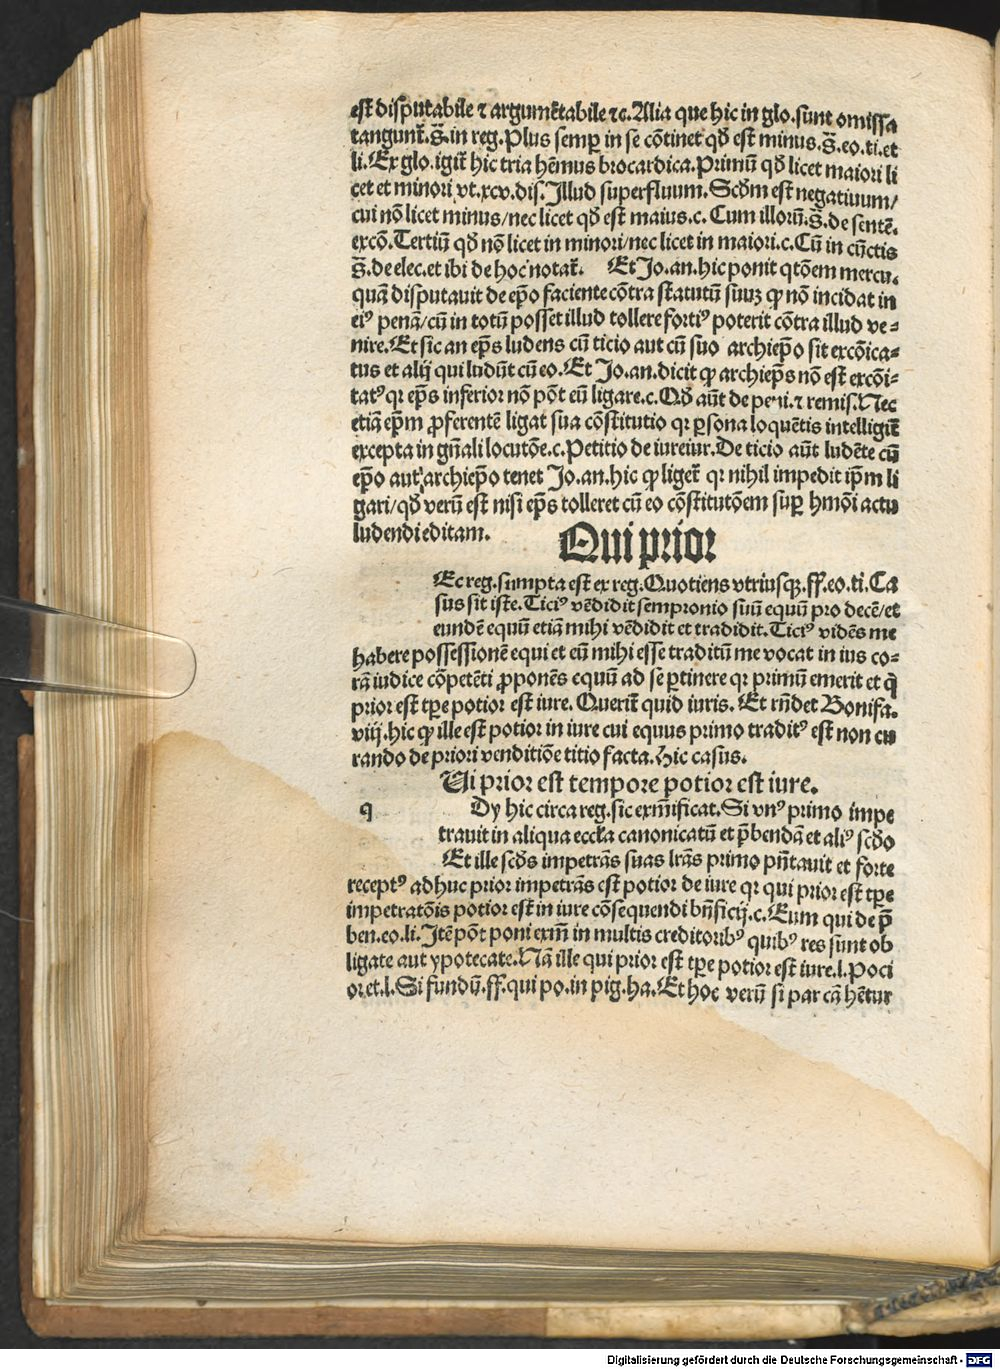 est disputabile ⁊ argumētabile ⁊c. Alia que hic in glo. sunt omissa
tangunt᷑. S̄. in reg. Plus semꝑ in se cōtinet qd̄ est minus. s̄. eo. ti. et
li. Ex glo. igit᷑ hic tria hēmus brocardica. Primū qd̄ licet maiori li
cet et minori vt. xcv. dis. Illud superfluum. Scd̄m est negatiuum/
cui nō licet minus/nec licet qd̄ est maius. c. Cum illorū. s̄. de sentē.
excō. Tertiū qd̄ nō licet in minori/nec licet in maiori. c. Cū in cūctis
s̄. de elec. et ibi de hoc notat᷑. Et Jo. an. hic ponit qtōem mercu.
quā disputauit de ep̄o faciente cōtra statutū suuꝫ ꝙ nō incidat in
eiꝰ penā/cū in totū posset illud tollere fortiꝰ poterit cōtra illud ve⸗
nire. Et sic an ep̄s ludens cū ticio aut cū suo archiep̄o sit excōica⸗
tus et alij qui ludūt cū eo. Et Jo. an. dicit ꝙ archiep̄s nō est excōi⸗
tatꝰ qr ep̄s inferior nō pōt eū ligare. c. Qd̄ aūt de peni. ⁊ remis. Nec
etiā ep̄m ꝓferentē ligat sua cōstitutio qr ꝑsona loquētis intelligit᷑
excepta in gn̄ali locutōe. c. Petitio de iureiur. De ticio aūt ludēte cū
ep̄o aut archiep̄o tenet Jo. an. hic ꝙ liget᷑ qr nihil impedit ip̄m li
gari/qd̄ verū est nisi ep̄s tolleret cū eo cōstitutōem suꝑ hmōi actu
ludendi editam.
Qui prior
Ec reg. sumpta est ex reg. Quotiens vtriusqꝫ. ff. eo. ti. Ca
sus sit iste. Ticiꝰ vēdidit sempronio suū equū pro decē/et
eundē equū etiā mihi vēdidit et tradidit. Ticiꝰ vidēs me
habere possessionē equi et eū mihi esse traditū me vocat in ius co⸗
rā iudice cōpetēti ꝓponēs equū ad se ꝑtinere qr primū emerit et q̄
prior est tꝑe potior est iure. Querit᷑ quid iuris. Et rn̄det Bonifa.
viij. hic ꝙ ille est potior in iure cui equus primo traditꝰ est non cu
rando de priori venditiōe titio facta. Hic casus.
Ui prior est tempore potior est iure.
q Dy hic circa reg. sic exm̄ificat. Si vnꝰ primo impe
trauit in aliqua eccl̄a canonicatū et p̄bendā et aliꝰ scd̄o
Et ille scd̄s impetrās suas lr̄as primo pn̄tauit et forte
receptꝰ adhuc prior impetrās est potior de iure qr qui prior est tꝑe
impetratōis potior est in iure cōsequendi bn̄ficij. c. Eum qui de p̄
ben. eo. li. Itē pōt poni exm̄ in multis creditoribꝰ quibꝰ res sunt ob
ligate aut ypotecate. Nā ille qui prior est tꝑe potior est iure. l. Poci
or. et. l. Si fundū. ff. qui po. in pig. ha. Et hoc verū si par cā hētur
Digitalisierung gefördert durch die Deutsche Forschungsgemeinschaft - DFG